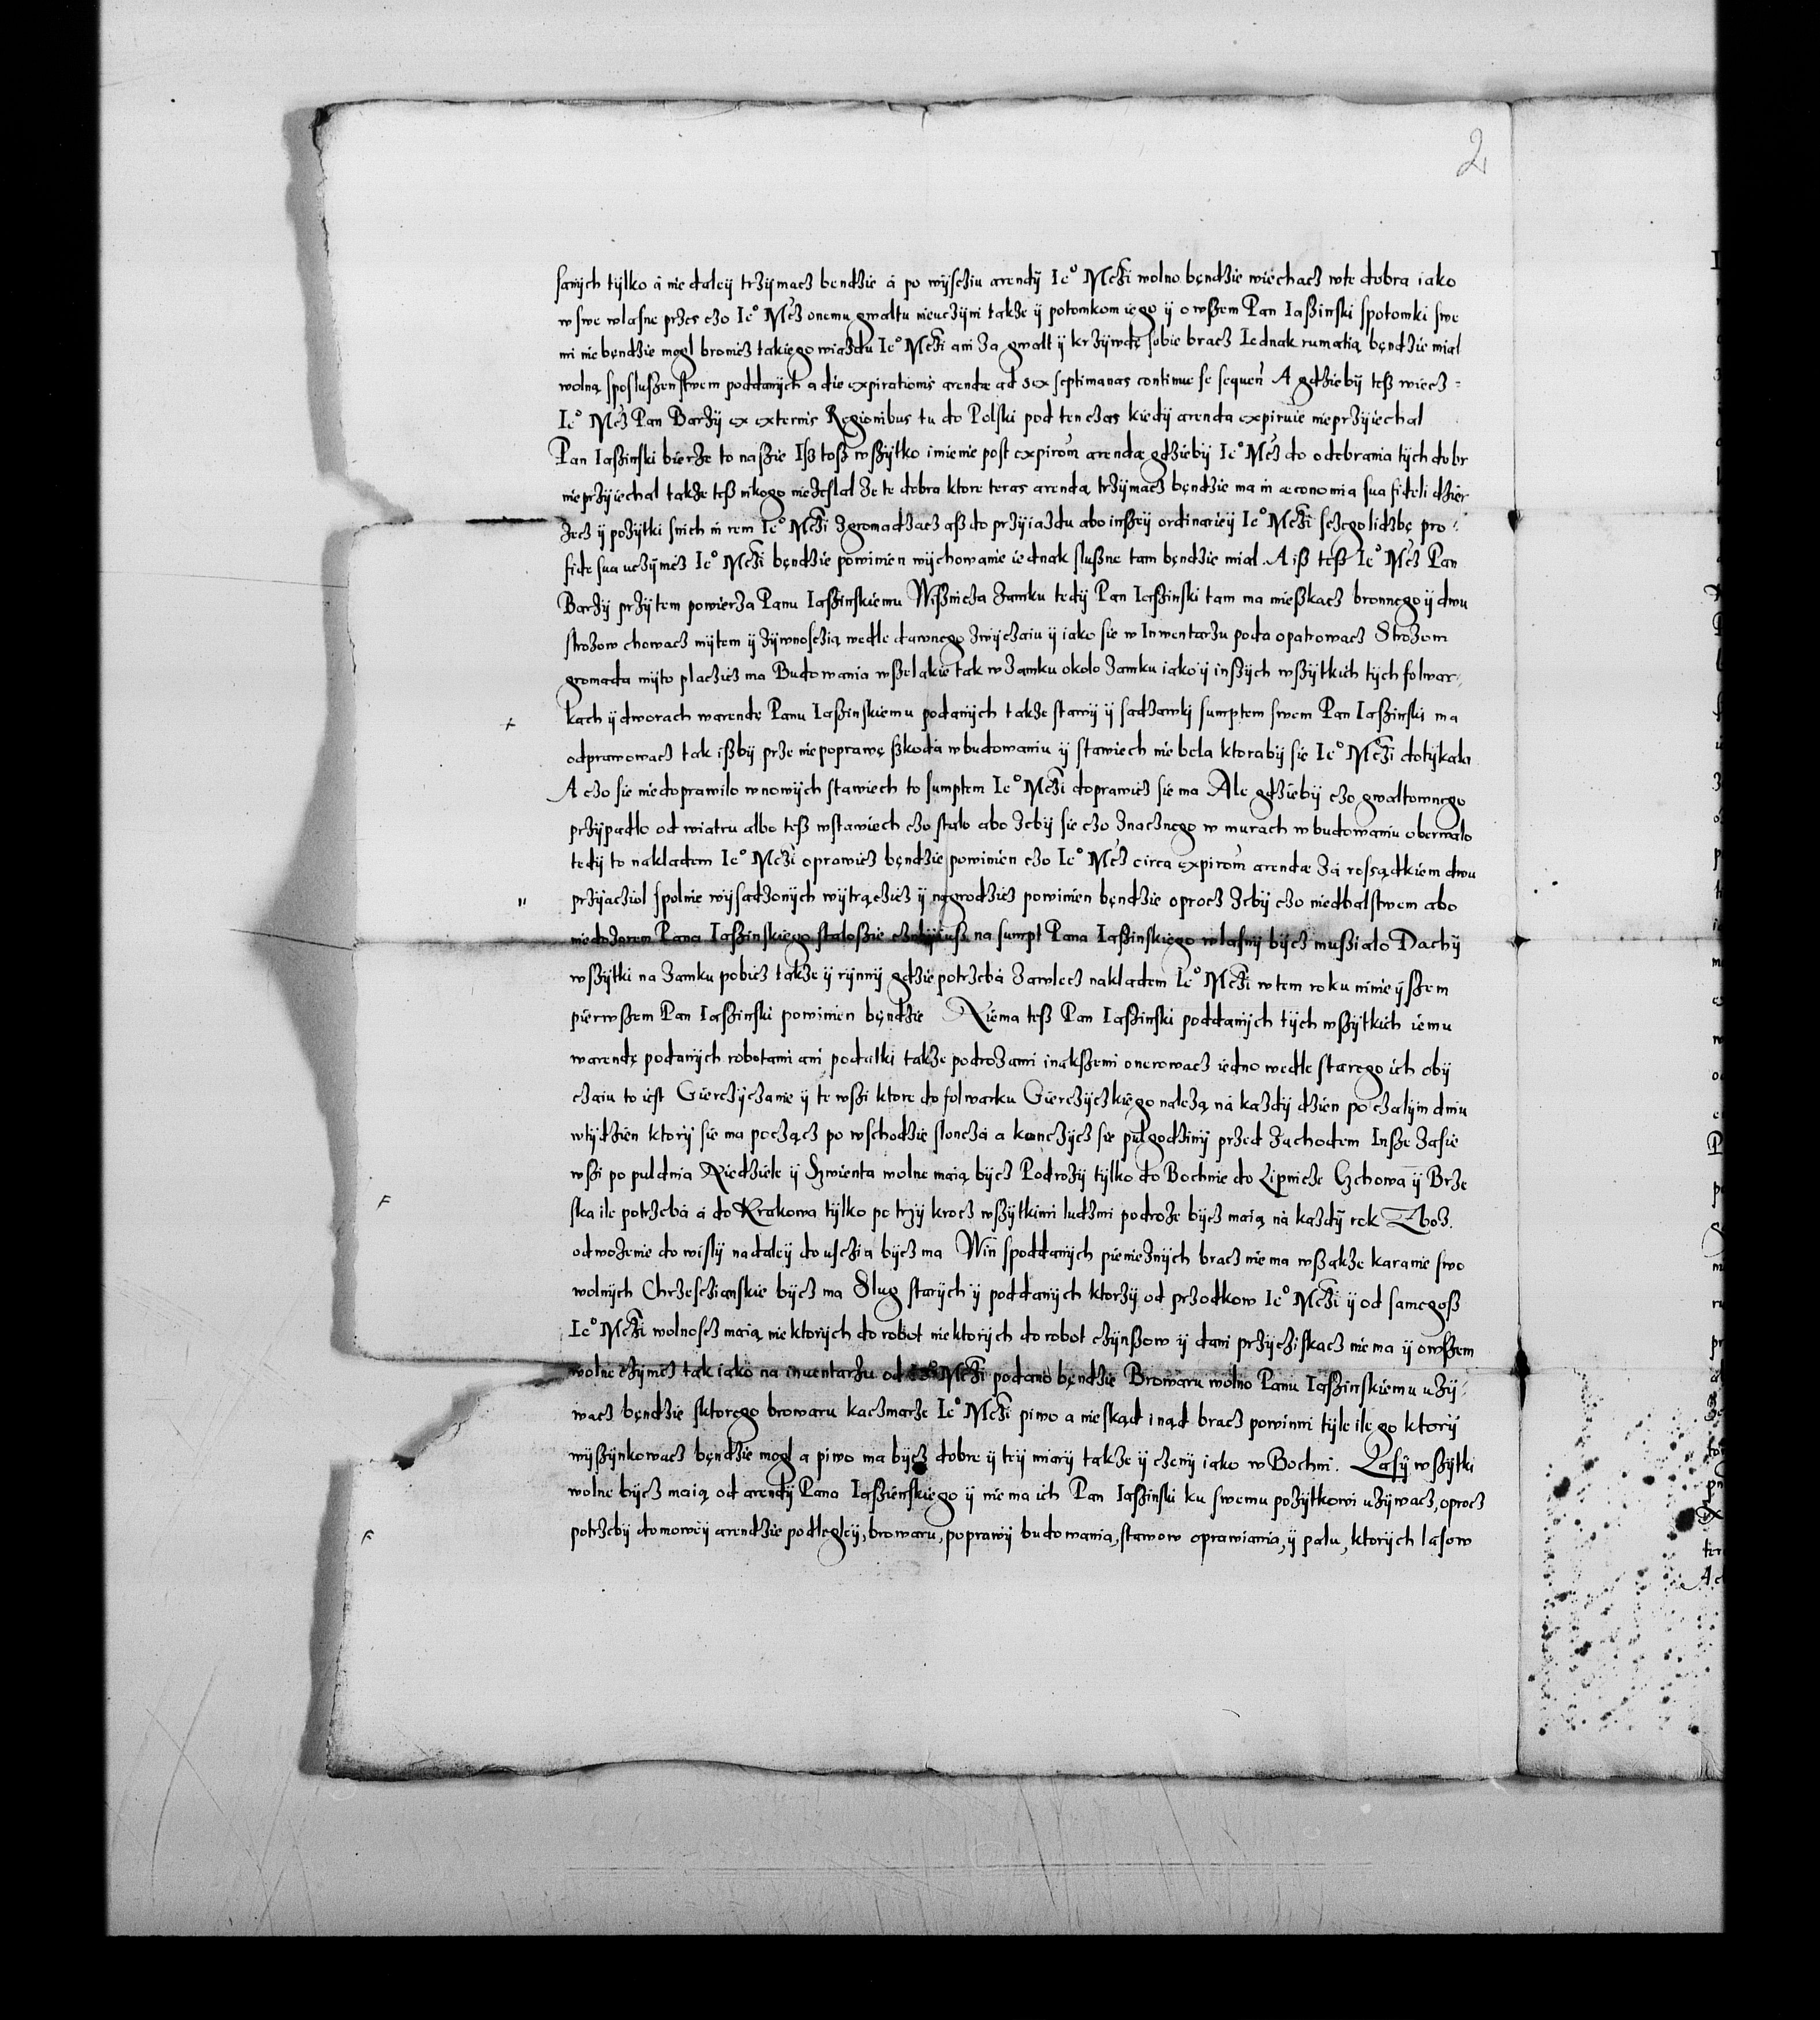 2
sanÿch tÿlko á nie daleÿ trzÿmacz bendzie á po wÿscziu arendÿ Ie° Mczi wolno bendzie wiechacz wte dobra iako
w swe wlasne przes czo Ie° Mcz onemu gwaltu nieuczÿni takze ÿ potomkom iego ÿ owszem Pan Iaszinski spotomki swe
mi nie bęndzie mogl bronicz takiego wiazdu Ie° Mczi ani za gwalt ÿ krzÿwdę sobie bracz Iednak rumatią bęndzie mial
wolną sposluszenstwem poddanÿch a die expirationis arendæ ad sex septimanas continue se sequeń A gdziebÿ tesz wiecz =
Ie° Mcz Pan Barzÿ ex externis Regionibus tu do Polski pod ten czas kiedÿ arenda expiruie nieprzÿiechal
Pan Iaszinski bierze to naszie Isz tosz wszÿtko imienie post expirom arendæ gdziebÿ Ie° Mcz do odebrania tÿch dobr
nieprzÿiechal takze tesz nikogo niezeslal Ze te dobra ktore teras arendą trzÿmacz bęndzie ma in œconomia sua fideli dzier
zecz ÿ pozÿtki snich in rem Ie° Mczi zgromadzacz asz do przÿiazdu abo inszeÿ ordinarieÿ Ie° Mczi sczego lidzbę pro-
fide sua uczÿnicz Ie° Mczi bęndzie powinien wÿchowanie iednak sluszne tam bęndzie mial. A isz tesz Ie° Mcz Pan
Barzÿ przÿtem powierza Panu Iaszinskiemu Wisznicza Zamku tedÿ Pan Iaszinski tam ma mieszkacz bronnego ÿ dwu
strozow chowacz mÿtem ÿ zÿwnosczią wedle dawnego zwÿczaiu ÿ iako sie w Inwentarzu poda opatrowacz Strozom
gromada mÿto placzicz ma Budowania wszelakie tak w Zamku okolo Zamku iako ÿ inszÿch wszÿtkich tÿch folwar-
kach ÿ dworach warendę Panu Iaszinskiemu podanÿch takze stawÿ ÿ sadzawkj sumptem swem Pan Iaszinski ma
odprawowacz tak iszbÿ prze niepoprawę szkoda wbudowaniu ÿ stawiech nie bela ktorabÿ sie Ie° Mczi dotÿkala
A czo sie niedoprawilo wnowÿch stawiech to sumptem Ie° Mczi doprawicz sie ma Ale gdziebÿ czo gwaltownego
przÿpadlo od wiatru albo tesz wstawiech czo stalo abo zebÿ sie czo znacznego w murach w budowaniu oberwalo
tedÿ to nakladem Ie° Mczi oprawicz bęndzie powinien czo Ie° Mcz circa expirom arendæ zá rossądkiem dwu
przÿiacziol spolnie wÿsadzonÿch wÿtrączicz ÿ nagrodzicz powinien bęndzie oprocz zebÿ czo niedbalstwem abo
niedozorem Pana Iaszinskiego staloszie na sumpt Pana Iaszinskiego wlasnÿ bÿcz musialo Dachÿ
wszÿtki na Zamku pobicz takze ÿ rÿnnÿ gdzie potrzebá zawlecz nakladem Ie° Mczi wtem roku ninieÿszem
pierwszem Pan Iaszinski powinien bęndzie Niema tesz Pan Iaszinski poddanÿch tÿch wszÿtkich iemu
warendę podanÿch robotami ani podatki takze podrozami inakszemi onerowacz iedno wedle starego ich obÿ
czaiu to iest Gierczÿczanie ÿ te wszi ktore do folwarku Gierczÿczkiego należą ná kazdÿ dzien po czalÿm dniu
wtÿdzien ktorÿ sie ma począcz po wschodzie sloncza a konczÿcz sie pulgodzinÿ przed Zachodem Insze zasie
wszi po puldnia Niedziele ÿ Szwienta wolne maią bÿcz Podrozÿ tÿlko do Bochnie do Lipnicze Czchowa ÿ Brze
ska ile potrzebá á do Krakowa tÿlko po trzÿ krocz wszÿtkimi ludzmi podroze bÿcz maią ná kazdÿ rok Zboz
odwozenie do wislÿ nadaleÿ do usczia bÿcz ma Win spoddanÿch pienieznÿch bracz niema wszakze karanie swo
wolnÿch Chrzesczianskie bÿcz ma Slug starÿch ÿ poddanÿch ktorzÿ od przodkow Ie° Mczi ÿ od samegosz
Ie° Mczi wolnoscz maią niektorÿch do robot niektorÿch do robot czÿnszow ÿ dani przÿcziskacz niema ÿ owszem
wolne czÿnicz tak iako na inuentarzu od Ie° Mczi podano bęndzie Browaru wolno Panu Iaszinskiemu uzÿ-
wacz bęndzie sktorego browaru kaczmarze Ie° Mczi piwo a nieskąd inąd bracz powinni tÿle ile go ktorÿ
wÿszÿnkowacz bęndzie mogl a piwo ma bÿcz dobre ÿ teÿ miarÿ takze ÿ czenÿ iako w Bochni. Lasÿ wszÿtki
wolne bÿcz maią od arendÿ Pana Iaszienskiego ÿ niema ich Pan Iaszinski ku swemu pozÿtkowi uzÿwacz, oprocz
potrzebÿ domoweÿ arendzie podlegleÿ, browaru, poprawÿ budowania, stawow oprawiania, ÿ palu, ktorÿch lasow